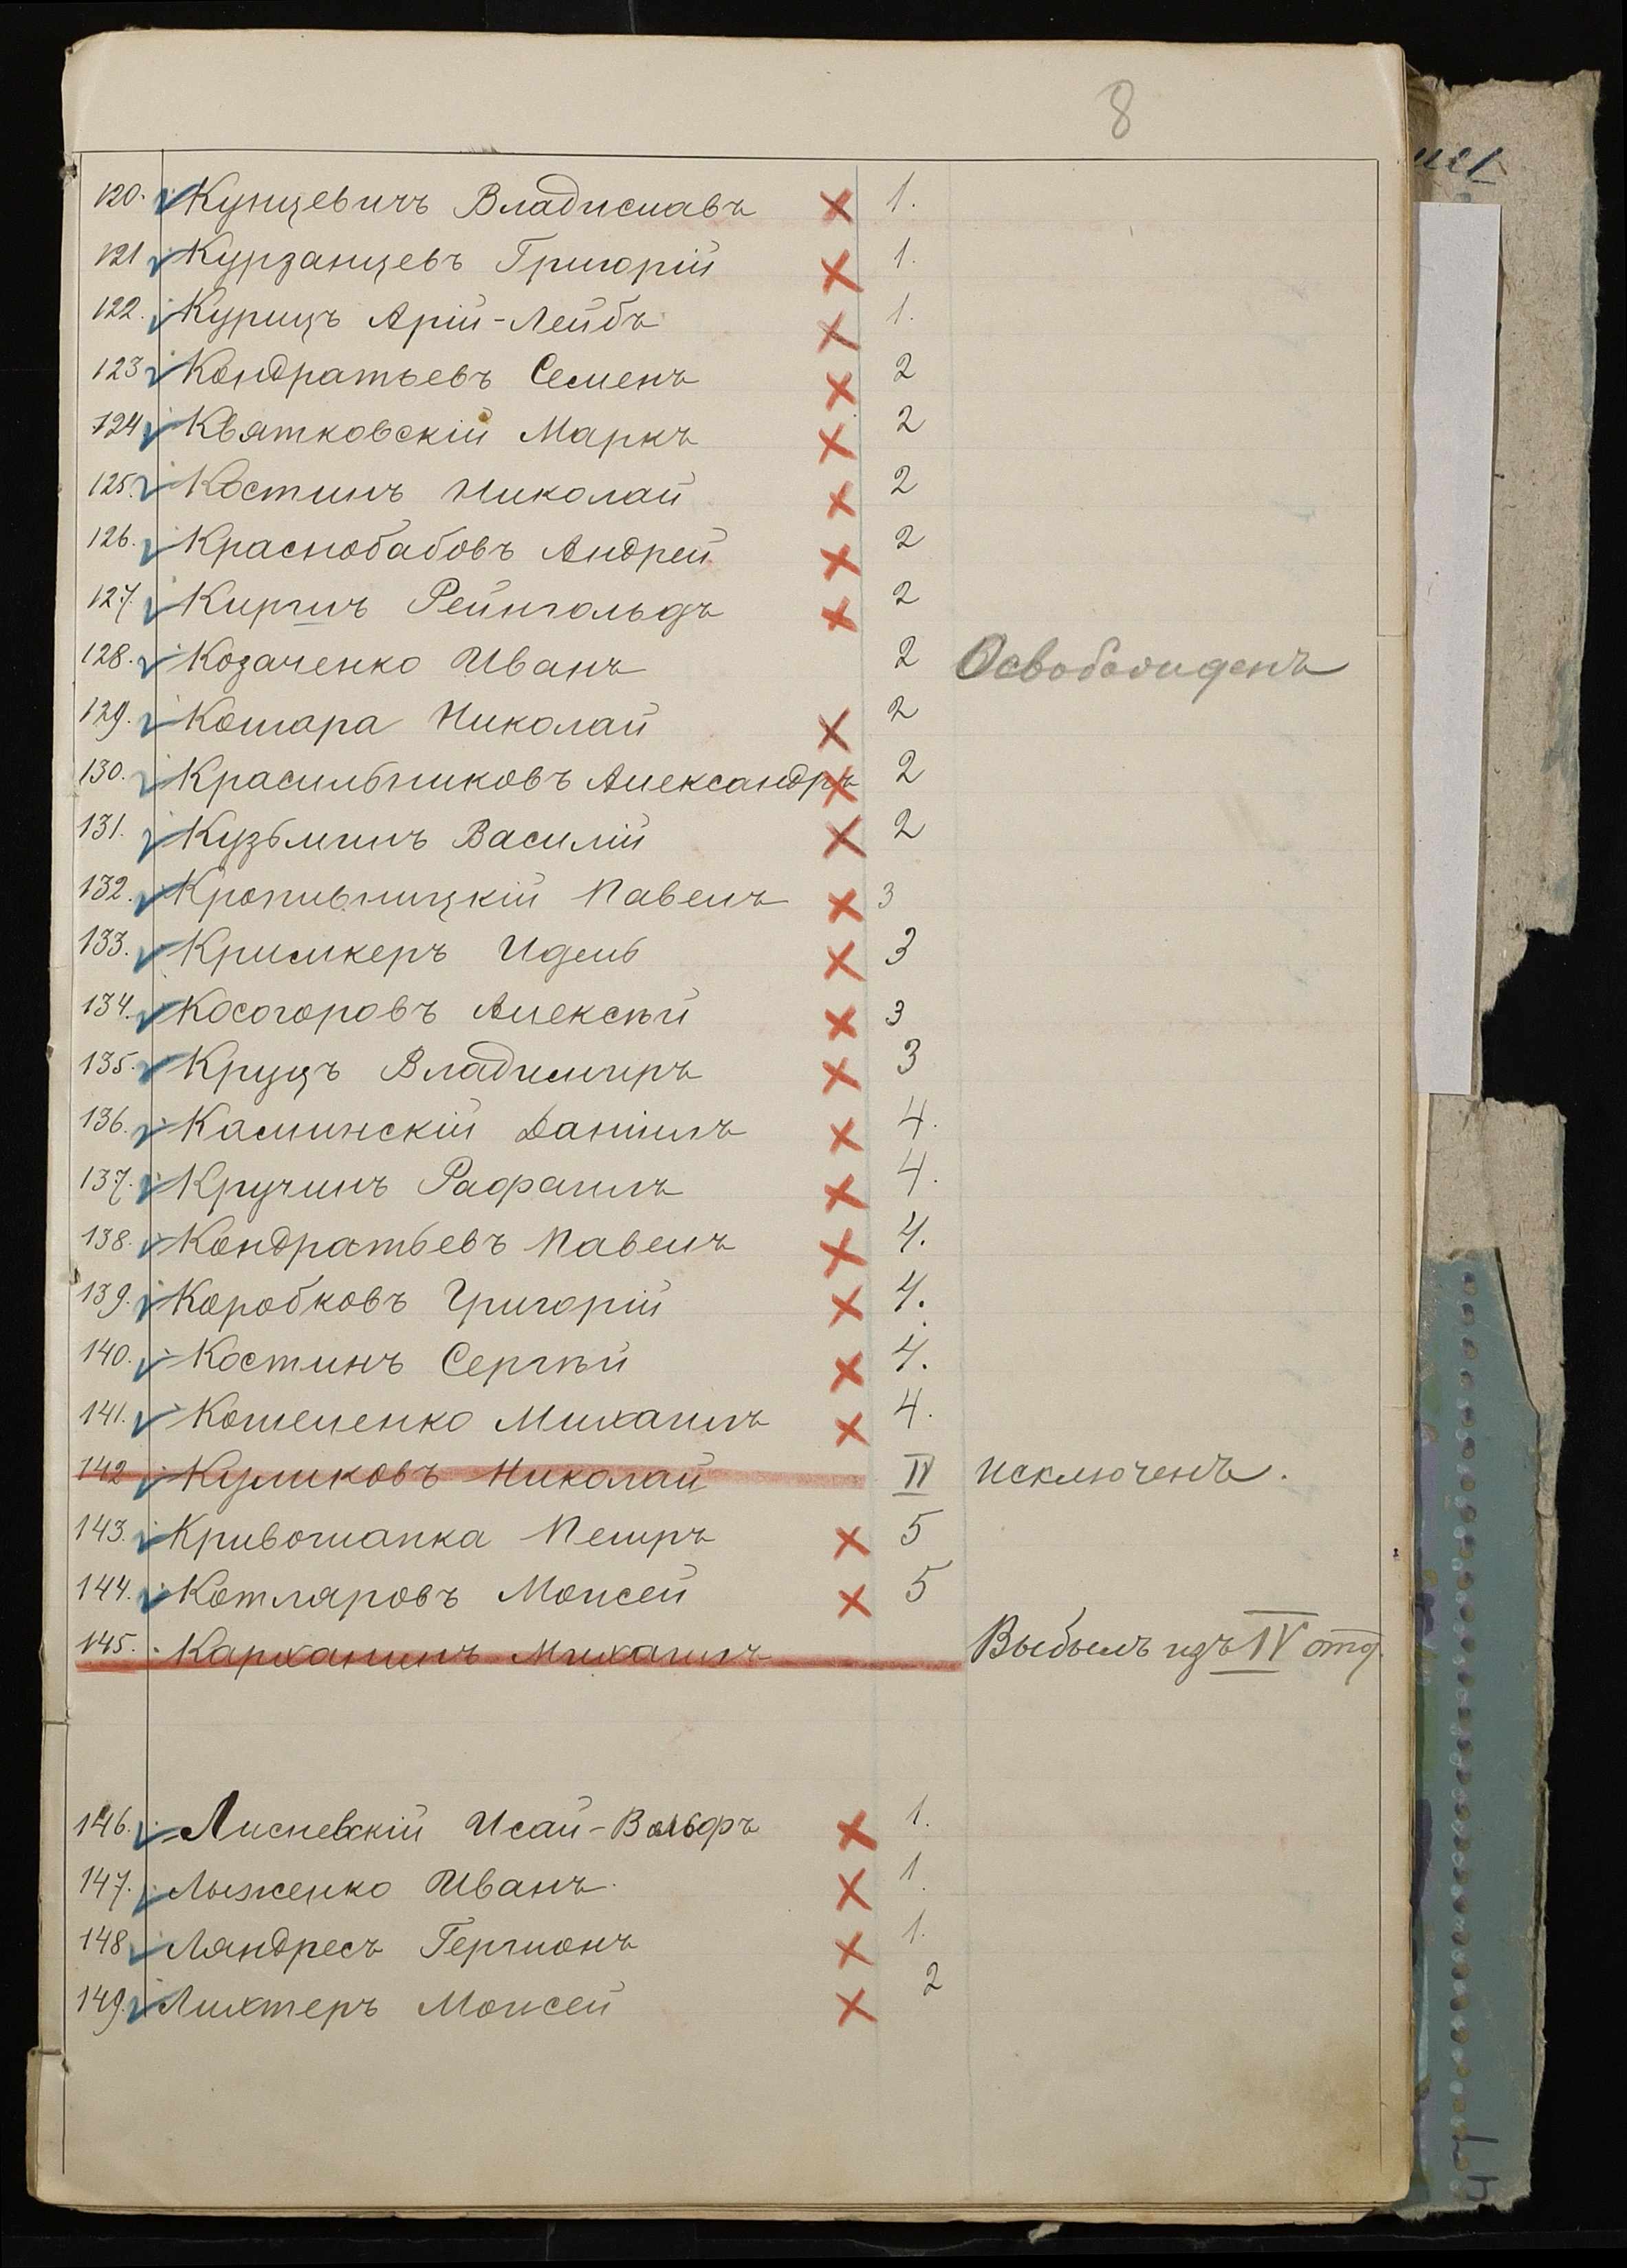 8
120. Кунцевичъ Владиславъ 1.
121 Курзанцевъ Григорій 1.
122. Курицъ Арій-Лейбъ 1.
123 Кондратьевъ Семенъ 2
124 Квятковскій Маркъ 2
125. Костинъ Николай 2
126. Краснобабовъ Андрей 2
127. Киргисъ Рейнгольдъ 2
128. Козаченко Иванъ 2 Освобожденъ
129. Кошара Николай 2
130. Красильниковъ Александръ 2
131. Кузьминъ Василій 2
132. Кропивницкій Павелъ 3
133. Кримкеръ Идель 3
134. Косогоровъ Алексѣй 3
135. Круцъ Владимиръ 3
136. Каминскій Даніилъ 4.
137. Кручинъ Рафаилъ 4.
138. Кондратьевъ Павелъ 4.
139. Коробковъ Григорій 4.
140. Костинъ Сергѣй 4.
141. Кошеленко Михаилъ 4.
142 Куликовъ Николай IV исключенъ.
143. Кривошапка Петръ 5
144. Котляровъ Моисей 5
145. Карханинъ Михаилъ Выбылъ изъ IV отд.
146. Лисневскій Исай-Вольфъ 1.
147. Лыженко Иванъ. 1.
148 Ляндресъ Гершонъ 1.
149. Лихтеръ Моисей 2